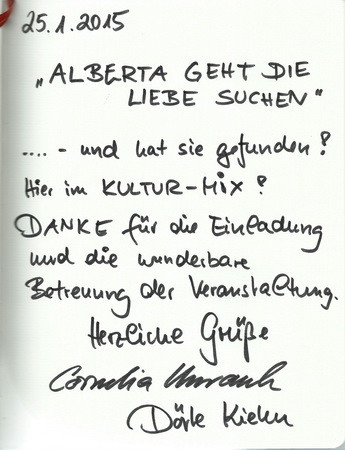 25.1.2015
„ALBERTA GEHT DIE
LIEBE SUCHEN"
.... - und hat sie gefunden?
Hier im KULTUR-MiX?
DANKE für die Einladung
und die wunderbare
Betreuung der Veranstaltung.
Herzliche Grüße
Cornelia
Dörte